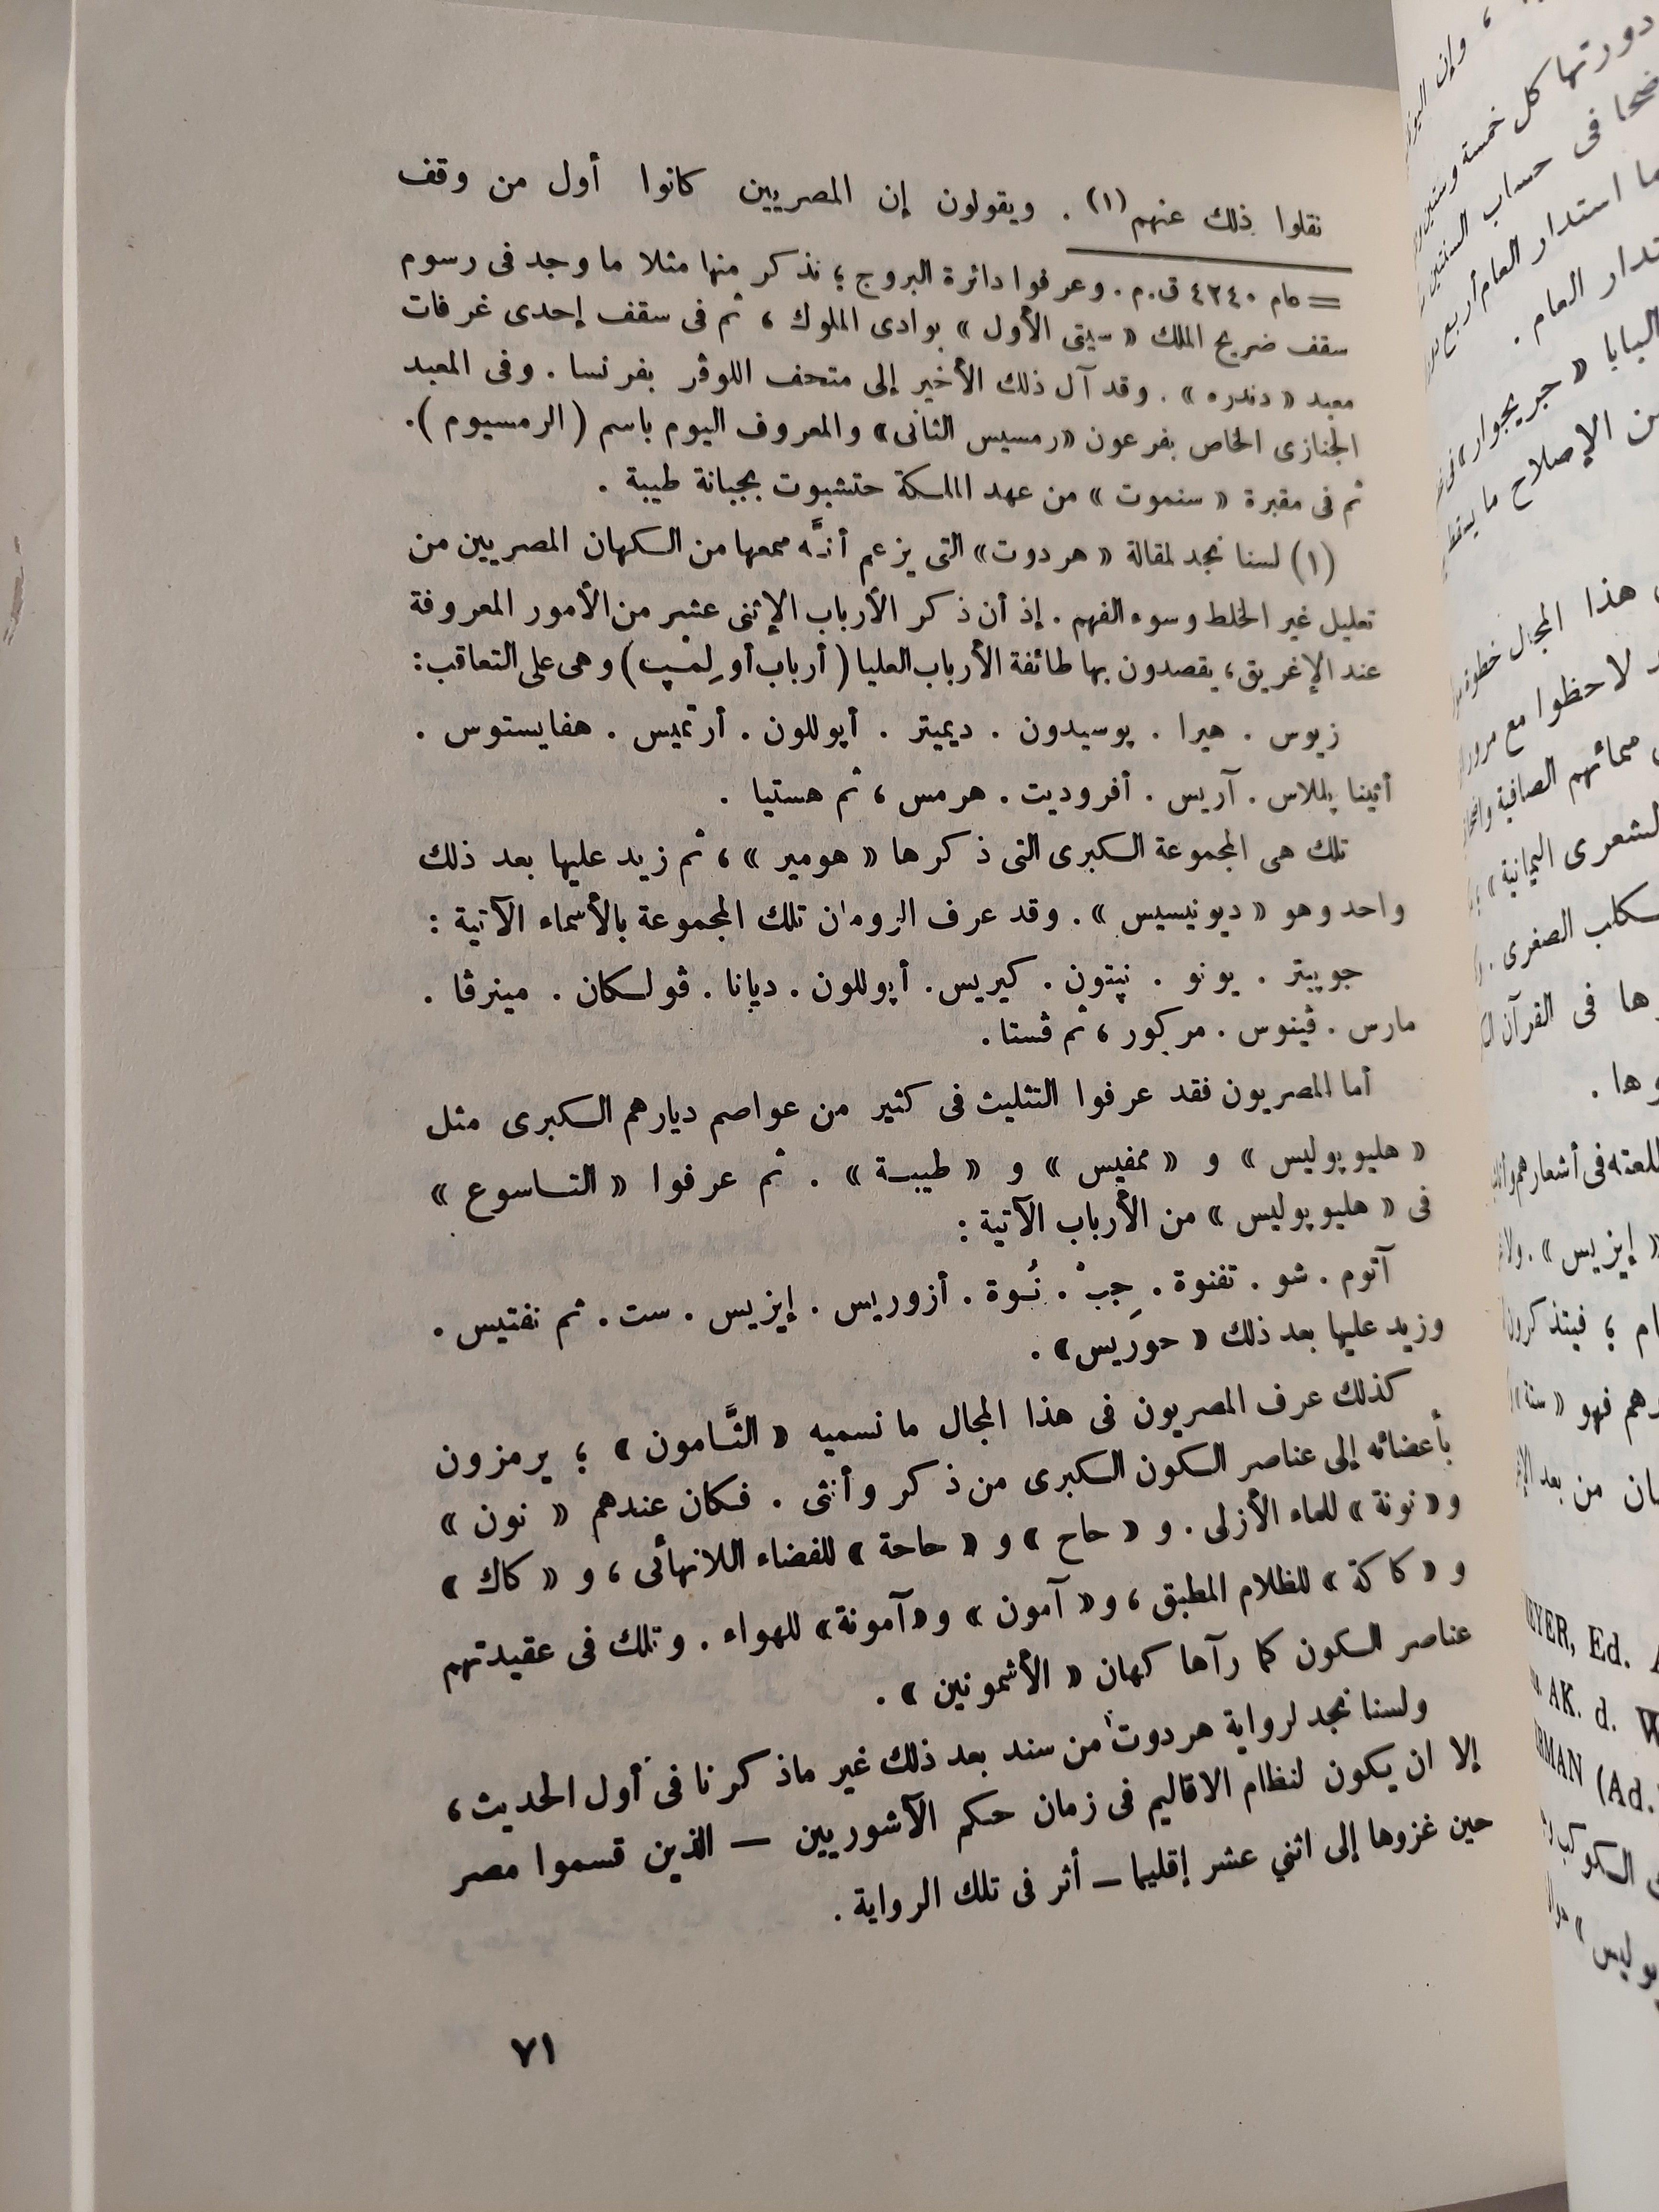 نقلوا ذلك عنهم (١) . ويقولون إن المصريين كانوا أول من وقف
= عام ٤٢٤٠ ق.م. وعرفوا دائرة البروج ؛ نذكر منها مثلا ما وجد فى رسوم
سقف ضريح الملك « سيتى الأول » بوادى الملوك ، ثم فى سقف إحدى غرفات
معبد « دندره » . وقد آل ذلك الأخير إلى متحف اللوڤر بفرنسا . وفى المعبد
الجنازى الخاص بفرعون «رمسيس الثانى» والمعروف اليوم باسم (الرمسيوم).
ثم فى مقبرة « سنموت » من عهد الملكة حتشبوت بجبانة طيبة .
(١) لسنا نجد لمقالة « هردوت » التى يزعم أنَّه سمعها من الكهان المصريين من
تعليل غير الخلط وسوء الفهم . إذ أن ذكر الأرباب الإثنى عشر من الأمور المعروفة
عند الإغريق ؛ يقصدون بها طائفة الأرباب العليا ( أرباب أولِمْپ ) وهى على التعاقب :
زيوس . هيرا . پوسيدون . ديميتر . أپوللون . أرتميس . هفايستوس .
أثينا پللاس . آريس . أفروديت . هرمس ، ثم هستيا .
تلك هى المجموعة الكبرى التى ذكرها « هومير » ، ثم زيد عليها بعد ذلك
واحد وهو « ديونيسيس » . وقد عرف الرومان تلك المجموعة بالأسماء الآتية :
جوپيتر . يونو . نپتون . كيريس . أپوللون . ديانا . ڤولكان . مينرڤا .
مارس . ڤينوس . مركور ، ثم ڤستا .
أما المصريون فقد عرفوا التثليث فى كثير من عواصم ديارهم الكبرى مثل
« هليوپوليس » و « ممفيس » و « طيبة » . ثم عرفوا « التاسوع »
فى « هليوپوليس » من الأرباب الآتية :
آتوم . شو . تفنوة . جِبْ . نُوة . أزوريس . إيزيس . ست . ثم نفتيس .
وزيد عليها بعد ذلك « حوريس » .
كذلك عرف المصريون فى هذا المجال ما نسميه « الثَّامون » ؛ يرمزون
بأعضائه إلى عناصر الكون الكبرى من ذكر وأنثى . فكان عندهم « نون »
و « نونة » للماء الأزلى . و « حاح » و « حاحة » للفضاء اللانهائى ، و « كاك »
و « كاكة » للظلام المطبق ، و « آمون » و «آمونة» للهواء . وتلك فى عقيدتهم
عناصر الكون كما رآها كهان « الأشمونين » .
ولسنا نجد لرواية هردوت من سند بعد ذلك غير ماذكرنا فى أول الحديث ،
إلا ان يكون لنظام الاقاليم فى زمان حكم الآشوريين — الذين قسموا مصر
حين غزوها إلى اثني عشر إقليما — أثر فى تلك الرواية .
٧١
، وإن
دورتها كل خمسة
فى حساب السنتين
استدار العام أربع
العام .
البابا « جريجوار »
الإصلاح ما
هذا المجال خطوة
لاحظوا مع مرور
سمائهم الصافية
الشعرى اليمانية »
الصغرى .
فى القرآن
فى أشعارهم
« إيزيس » .
؛ فيتذكرون
فهو « ستة »
من بعد
Ed.
AK. d.
(Ad.